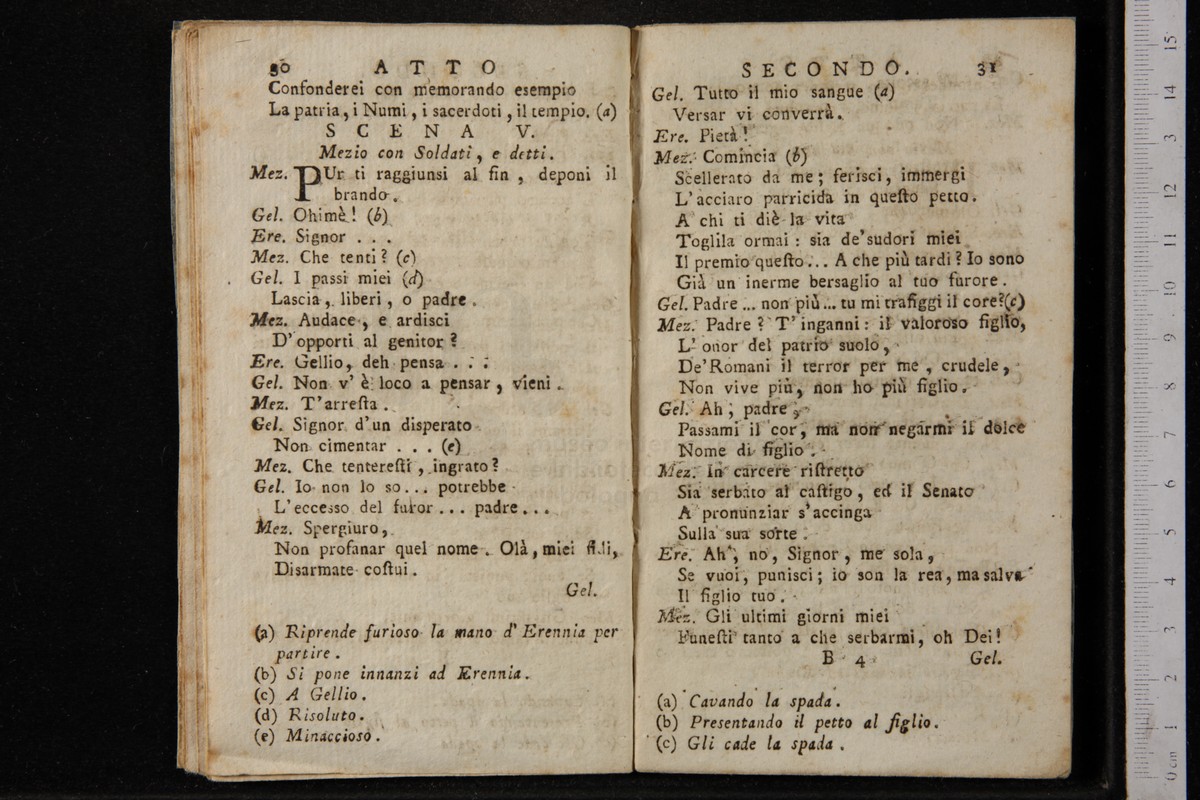 30 ATTO
Confonderei con memorando esempio
La patria, i Numi, i sacerdoti, il tempio. (a)
SCENA V.
Mezio con Soldati, e detti.
Mez. PUr ti raggiunsi al fin, deponi il
brando.
Gel. Ohimè! (b)
Ere. Signor . . .
Mez. Che tenti? (c)
Gel. I passi miei (d)
Lascia, liberi, o padre.
Mez. Audace, e ardisci
D'opporti al genitor?
Ere. Gellio, deh pensa . . .
Gel. Non v'è loco a pensar, vieni.
Mez. T'arreſta.
Gel. Signor d'un disperato
Non cimentar . . . (e)
Mez. Che tentereſti, ingrato?
Gel. Io non lo so... potrebbe
L'eccesso del furor... padre...
Mez. Spergiuro,
Non profanar quel nome. Olà, miei fidi,
Disarmate coſtui.
Gel.
(a) Riprende furioso la mano d'Erennia per
partire.
(b) Si pone innanzi ad Erennia.
(c) A Gellio.
(d) Risoluto.
(e) Minaccioso.
SECONDO. 31
Gel. Tutto il mio sangue (a)
Versar vi converrà.
Ere. Pietà!
Mez. Comincia (b)
Scellerato da me; ferisci, immergi
L'acciaro parricida in queſto petto.
A chi ti diè la vita
Toglila ormai: sia de'sudori miei
Il premio queſto... A che più tardi? Io sono
Già un inerme bersaglio al tuo furore.
Gel. Padre... non più... tu mi trafiggi il core? (c)
Mez. Padre? T'inganni: il valoroso figlio,
L'onor del patrio suolo,
De'Romani il terror per me, crudele,
Non vive più, non ho più figlio.
Gel. Ah, padre,
Passami il cor, ma non negarmi il dolce
Nome di figlio.
Mez. In carcere riſtretto
Sia serbato al caſtigo, ed il Senato
A pronunziar s'accinga
Sulla sua sorte.
Ere. Ah, no, Signor, me sola,
Se vuoi, punisci; io son la rea, ma salva
Il figlio tuo.
Mez. Gli ultimi giorni miei
Funeſti tanto a che serbarmi, oh Dei!
B 4 Gel.
(a) Cavando la spada.
(b) Presentando il petto al figlio.
(c) Gli cade la spada.
0 cm 1 2 3 4 5 6 7 8 9 10 11 12 13 14 15